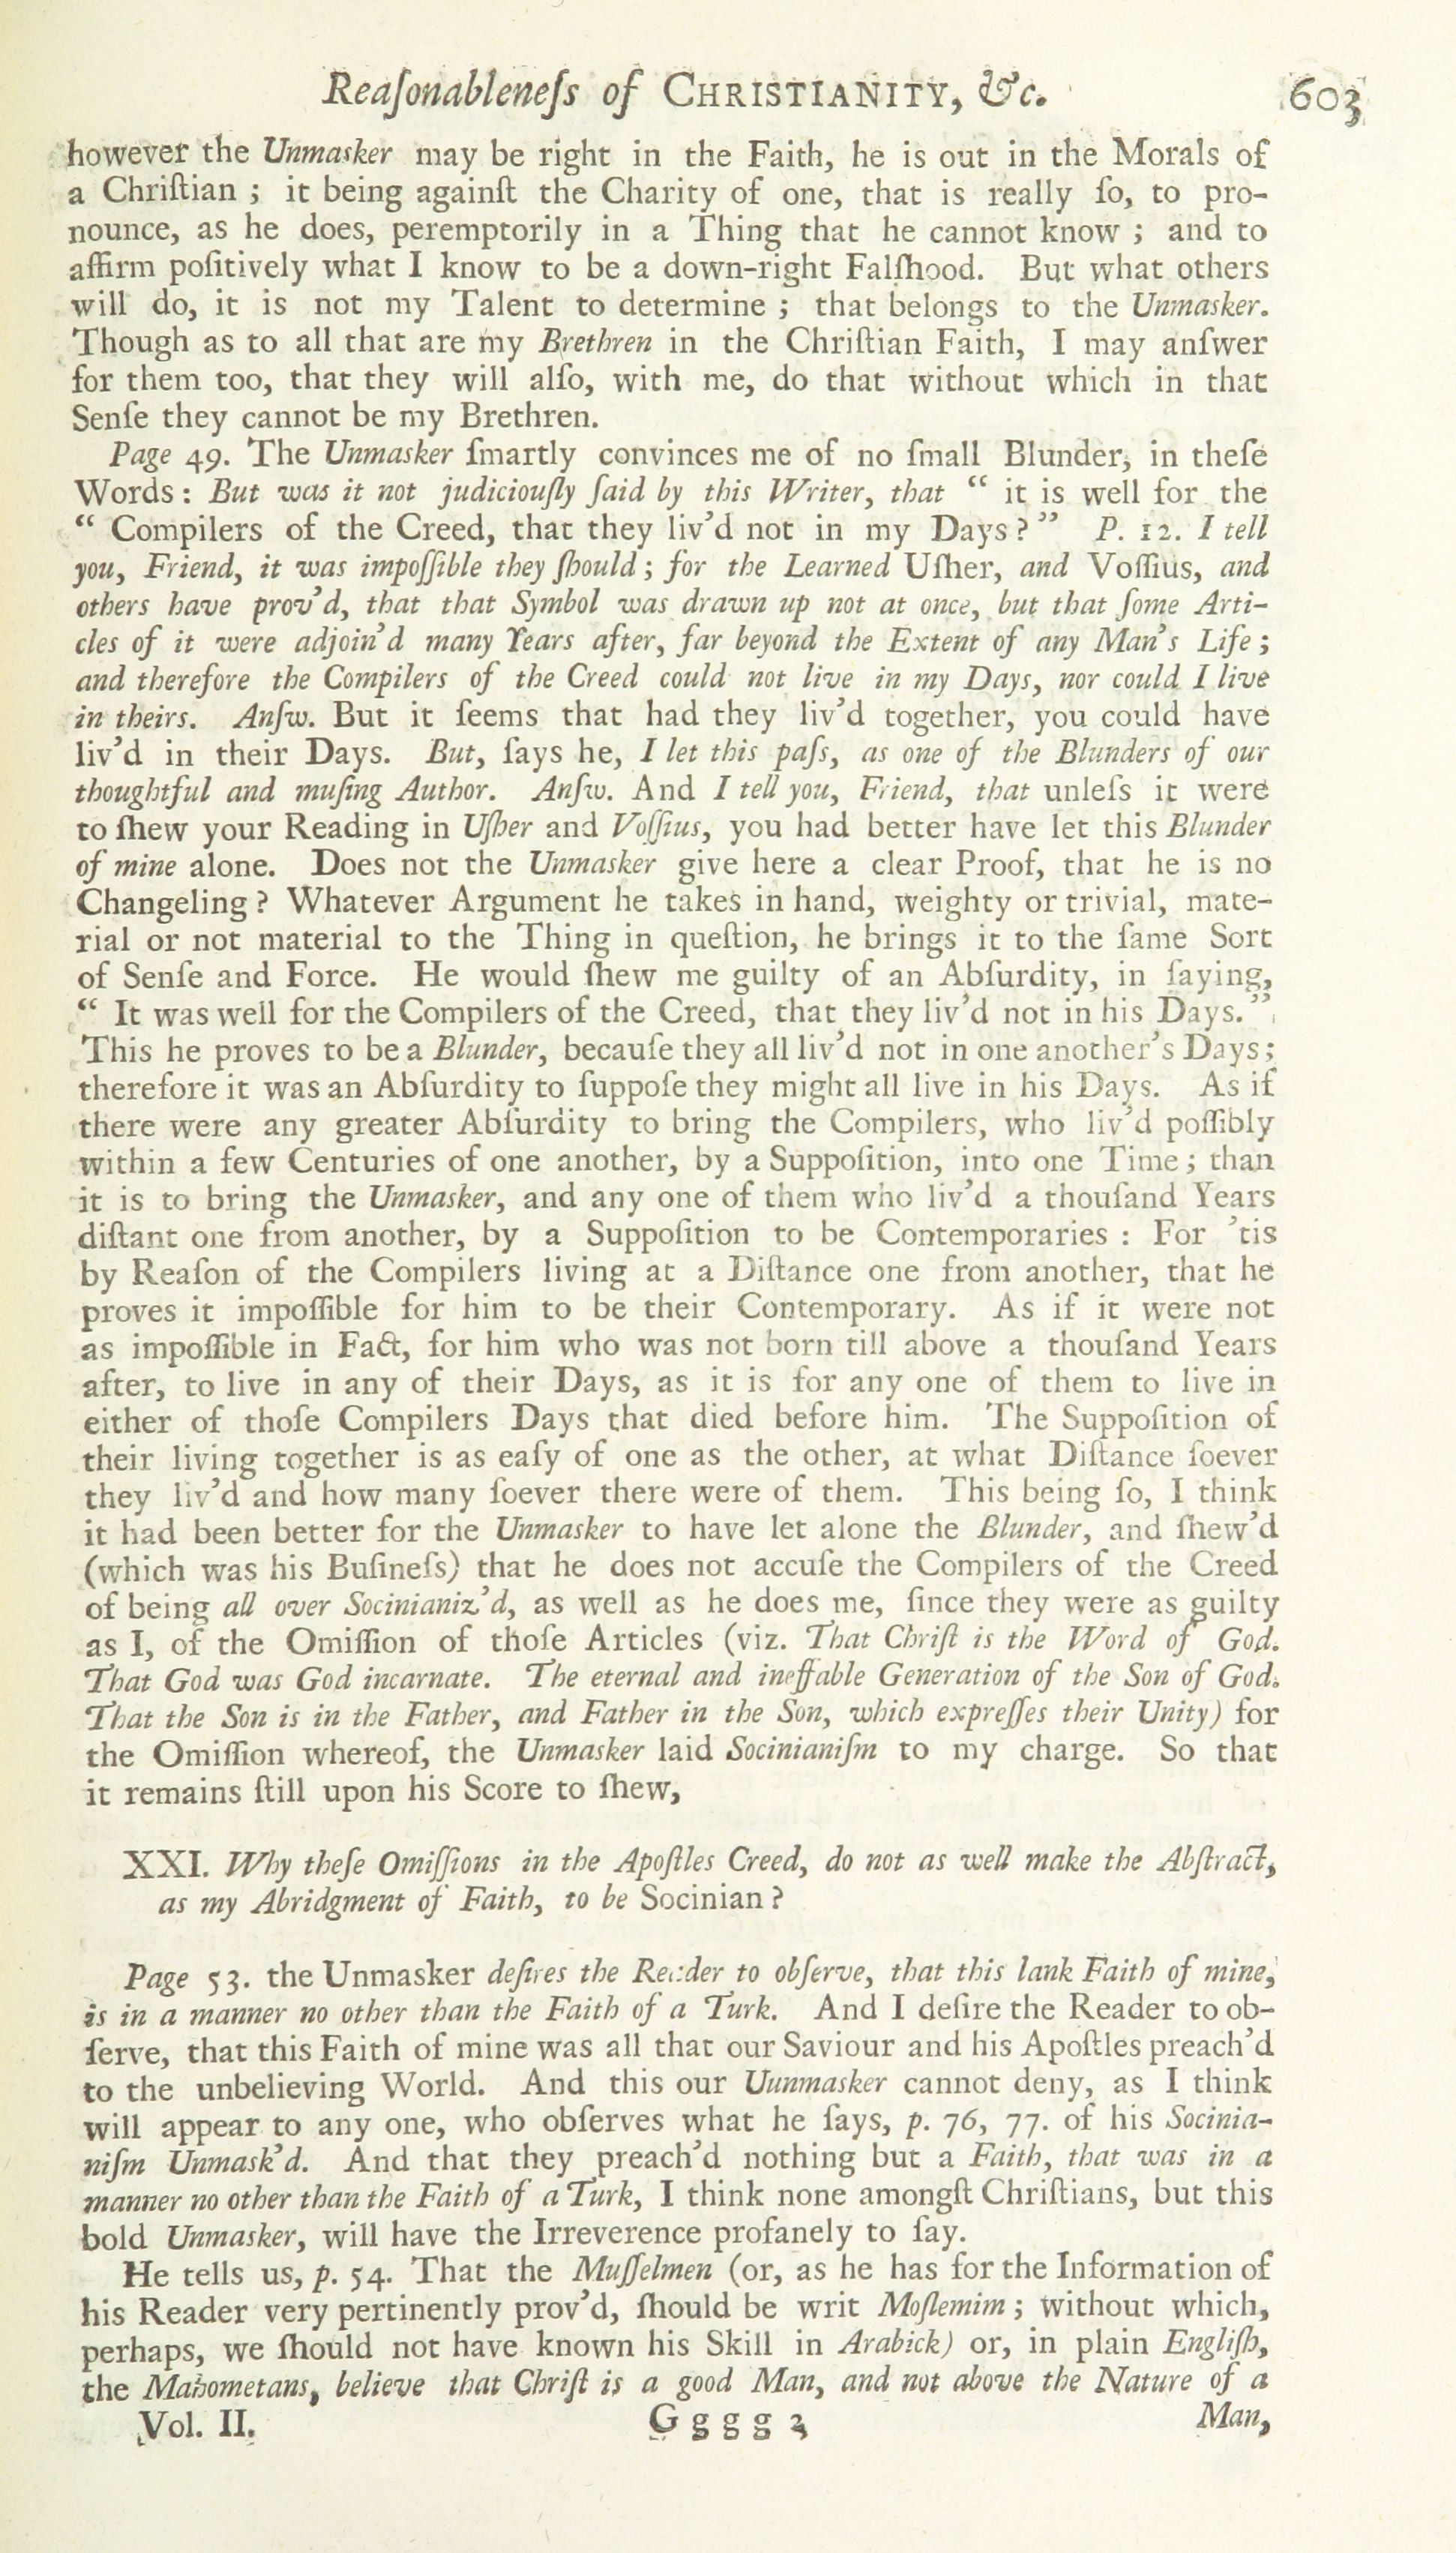 Reaſonableneſs of CHRISTIANITY, &c. 603
however the Unmasker may be right in the Faith, he is out in the Morals of
a Chriſtian ; it being againſt the Charity of one, that is really ſo, to pro-
nounce, as he does, peremptorily in a Thing that he cannot know ; and to
affirm poſitively what I know to be a down-right Falſhood. But what others
will do, it is not my Talent to determine ; that belongs to the Unmasker.
Though as to all that are my Brethren in the Chriſtian Faith, I may anſwer
for them too, that they will alſo, with me, do that without which in that
Senſe they cannot be my Brethren.
Page 49. The Unmasker ſmartly convinces me of no ſmall Blunder, in theſe
Words : But was it not judiciouſly ſaid by this Writer, that “ it is well for the
“ Compilers of the Creed, that they liv’d not in my Days ? ” P. 12. I tell
you, Friend, it was impoſſible they ſhould ; for the Learned Uſher, and Voſſius, and
others have prov’d, that that Symbol was drawn up not at once, but that ſome Arti-
cles of it were adjoin’d many Years after, far beyond the Extent of any Man’s Life ;
and therefore the Compilers of the Creed could not live in my Days, nor could I live
in theirs. Anſw. But it ſeems that had they liv’d together, you could have
liv’d in their Days. But, ſays he, I let this paſs, as one of the Blunders of our
thoughtful and muſing Author. Anſw. And I tell you, Friend, that unleſs it were
to ſhew your Reading in Uſher and Voſſius, you had better have let this Blunder
of mine alone. Does not the Unmasker give here a clear Proof, that he is no
Changeling ? Whatever Argument he takes in hand, weighty or trivial, mate-
rial or not material to the Thing in queſtion, he brings it to the ſame Sort
of Senſe and Force. He would ſhew me guilty of an Abſurdity, in ſaying,
“ It was well for the Compilers of the Creed, that they liv’d not in his Days. ”
This he proves to be a Blunder, becauſe they all liv’d not in one another’s Days ;
therefore it was an Abſurdity to ſuppoſe they might all live in his Days. As if
there were any greater Abſurdity to bring the Compilers, who liv’d poſſibly
within a few Centuries of one another, by a Suppoſition, into one Time ; than
it is to bring the Unmasker, and any one of them who liv’d a thouſand Years
diſtant one from another, by a Suppoſition to be Contemporaries : For ’tis
by Reaſon of the Compilers living at a Diſtance one from another, that he
proves it impoſſible for him to be their Contemporary. As if it were not
as impoſſible in Fact, for him who was not born till above a thouſand Years
after, to live in any of their Days, as it is for any one of them to live in
either of thoſe Compilers Days that died before him. The Suppoſition of
their living together is as eaſy of one as the other, at what Diſtance ſoever
they liv’d and how many ſoever there were of them. This being ſo, I think
it had been better for the Unmasker to have let alone the Blunder, and ſhew’d
(which was his Buſineſs) that he does not accuſe the Compilers of the Creed
of being all over Socinianiz’d, as well as he does me, ſince they were as guilty
as I, of the Omiſſion of thoſe Articles (viz. That Chriſt is the Word of God.
That God was God incarnate. The eternal and ineffable Generation of the Son of God.
That the Son is in the Father, and Father in the Son, which expreſſes their Unity) for
the Omiſſion whereof, the Unmasker laid Socinianiſm to my charge. So that
it remains ſtill upon his Score to ſhew,
XXI. Why theſe Omiſſions in the Apoſtles Creed, do not as well make the Abſtract,
as my Abridgment of Faith, to be Socinian ?
Page 53. the Unmasker deſires the Reader to obſerve, that this lank Faith of mine,
is in a manner no other than the Faith of a Turk. And I deſire the Reader to ob-
ſerve, that this Faith of mine was all that our Saviour and his Apoſtles preach’d
to the unbelieving World. And this our Uunmasker cannot deny, as I think
will appear to any one, who obſerves what he ſays, p. 76, 77. of his Socinia-
niſm Unmask’d. And that they preach’d nothing but a Faith, that was in a
manner no other than the Faith of a Turk, I think none amongſt Chriſtians, but this
bold Unmasker, will have the Irreverence profanely to ſay.
He tells us, p. 54. That the Muſſelmen (or, as he has for the Information of
his Reader very pertinently prov’d, ſhould be writ Moſlemim ; without which,
perhaps, we ſhould not have known his Skill in Arabick) or, in plain Engliſh,
the Mahometans, believe that Chriſt is a good Man, and not above the Nature of a
Vol. II. G g g g 2 Man,